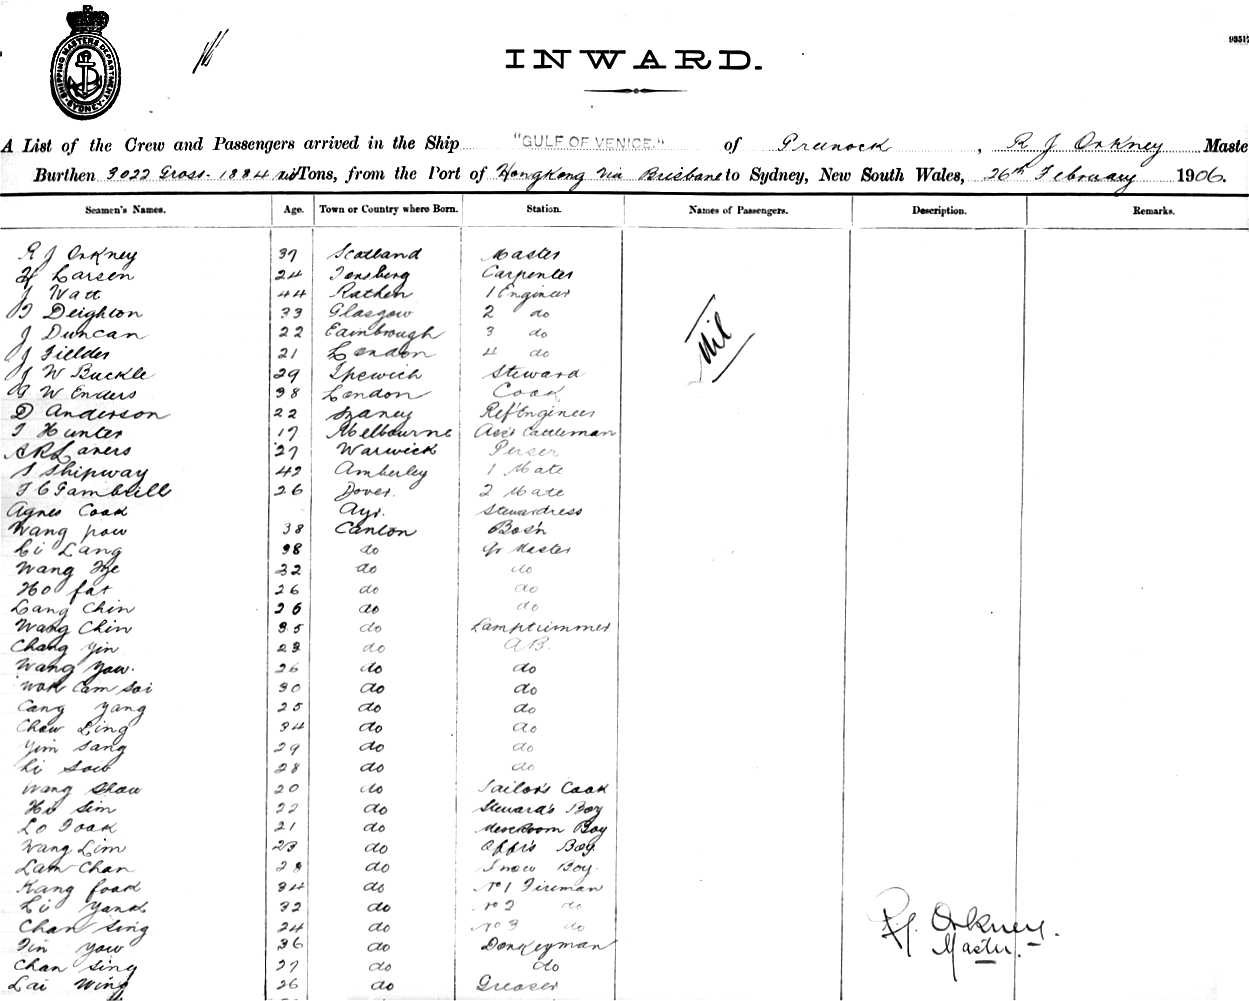 SHIPPING MASTERS DEPARTMENT SYDNEY
INWARD.
A List of the Crew and Passengers arrived in the Ship "GULF OF VENICE." of Greenock, R J Orkney Maste
Burthen 3022 Gross. 1884 Tons, from the Port of HongKong via Brisbane to Sydney, New South Wales, 26th February 1906.
Seamen's Names. Age. Town or Country where Born. Station. Names of Passengers. Description. Remarks.
R J Orkney 37 Scotland Master
H Larsen 24 Tonsberg Carpenter
J Watt 44 Rathen 1 Engineer
T Deighton 33 Glasgow 2 do
J Duncan 22 Edinbrough 3 do
J Fielder 21 London 4 do
J W Buckle 29 Ipswich Steward
W Enders 38 London Cook
D Anderson 22 Sydney Ref Engineer
T Hunter 17 Melbourne Ass't Cattleman
27 Warwick Purser
S Shipway 42 Amberley 1 Mate
T C Fambrill 26 Dover. 2 Mate
Agnes Cook Ayr. Stewardess
Wang pow 38 Canton Bos'n
Li Lang 38 do Qr Master
Wang Hye 32 do do
Ho fat 26 do do
Lang Chin 26 do do
Wang Chin 35 do Lamptrimmer
Chang Yin 23 do A.B.
Wang Yow. 26 do do
Wok Cam Soi 30 do do
Cang Yang 25 do do
Chow Ling 34 do do
Yim Sang 29 do do
Li Sow 28 do do
Wang Show 20 do Sailor's Cook
Ho Sim 22 do Steward's Boy
Lo Fook 21 do Messroom Boy
Wang Lim 23 do Off's Boy
Lam Chan 28 do Boy
Kang fook 34 do No 1 Fireman
Li Yank 32 do No 2 do
Chan Sing 24 do No 3 do
Tin Yow 36 do Donkeyman
Chan Sing 27 do do
Lai Wing 26 do Greaser
Nil
R.J. Orkney.
Master.